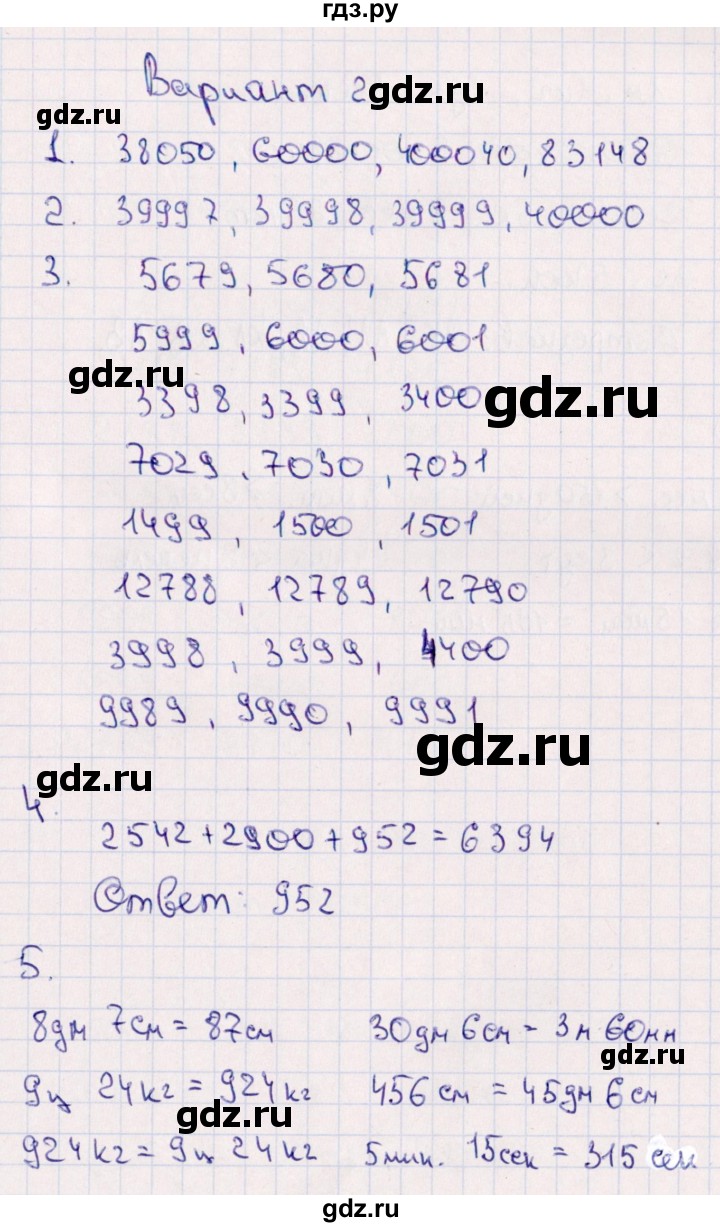 гдз.ру
Вариант 2
gdz.ru
gdz.ru
1. 38050, 60000, 400040, 83148
2. 39997, 39998, 39999, 40000
3. 5679, 5680, 5681
5999, 6000, 6001
gdz.ru
gdz.ru
3398, 3399, 3400
7029, 7030, 7031
1499, 1500, 1501
12788, 12789, 12790
3998, 3999, 4400
9989, 9990, 9991
gdz.ru
gdz.ru
4.
2542+2900+952=6394
Ответ: 952
5.
8дм 7см = 87см 30дм 6см - 3м 60мм
gdz.ru
9ц 24кг = 924кг 456см = 45дм 6см
gdz.ru
924кг = 9ц 24кг 5мин. 15сек = 315 сек
gdz.ru
gdz.ru